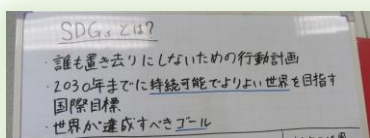 SDGsとは?
・誰も置き去りにしないための行動計画
・2030年までに持続可能でよりよい世界を目指す
国際目標
・世界が達成すべきゴール